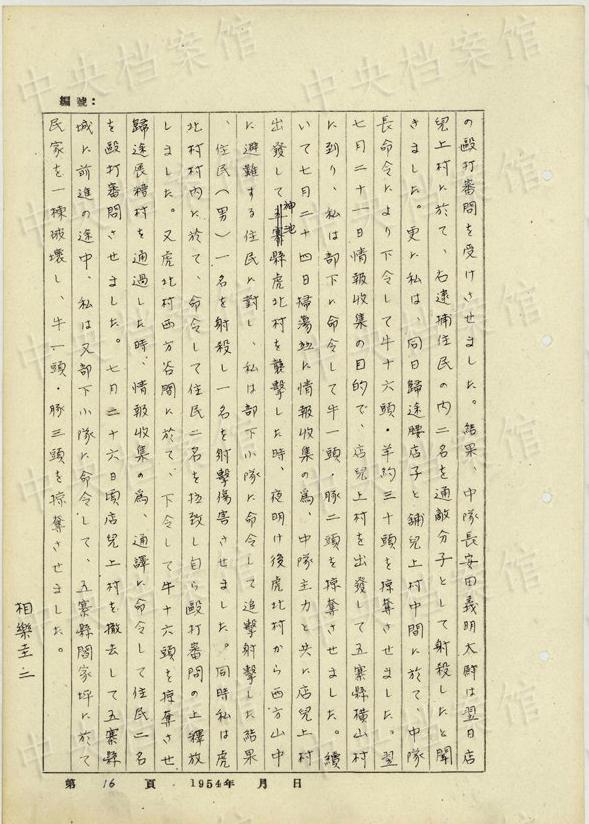 編號：
の毆打審問を受けさせました。結果、中隊長安田義明大尉は翌日店
兒上村に於て、右逮捕住民の内二名を通敵分子として射殺したと聞
きました。更に私は、同日歸途腰店子と鋪兒上村中間に於て、中隊
長命令により下令して牛十六頭・羊約三十頭を掠奪させました。翌
七月二十一日情報收集の目的で、店兒上村を出發して五寨縣横山村
に到り、私は部下に命令して牛一頭・豚二頭を掠奪させました。續
いて七月二十四日掃蕩並に情報收集の為、中隊主力と共に店兒上村
出發して神池縣虎北村を襲擊した時、夜明け後虎北村から西方山中
に避難する住民に對し、私は部下小隊に命令して追擊射擊した結果
、住民（男）一名を射殺し一名を射擊傷害させました。同時私は虎
北村村内に於て、命令して住民二名を拉致し自ら毆打審問の上釋放
しました。又虎北村西方谷間に於て、下令して牛十六頭を掠奪させ
歸途長糟村を通過した時、情報收集の為、通譯に命令して住民二名
を毆打審問させました。七月二十六日頃店兒上村を撤去して五寨縣
城に前進の途中、私は又部下小隊に命令して、五寨縣閻家坪に於て
民家を一棟破壞し、牛一頭・豚三頭を掠奪させました。
相樂圭二
第 16 頁 1954年 月 日
中央档案馆